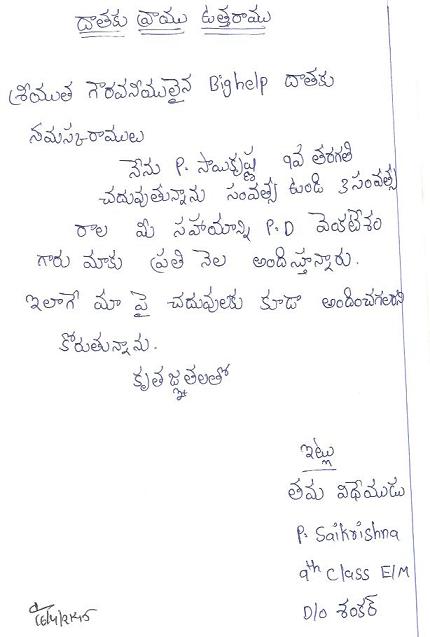 దాతకు వ్రాయు ఉత్తరాము
శ్రీయుత గౌరవనీయులైన Bighelp దాతకు
నమస్కారాములు
నేను P. సాయికృష్ణ 9వ తరగతి
చదువుతున్నాను సంవత్స ఉండి 3 సంవత్స
రాల మీ సహాయాన్ని P.D వెంకటేశం
గారు మాకు ప్రతి నెల అందిస్తూన్నారు.
ఇలాగే మా పై చదువులకు కూడా అందించగలరని
కోరుతున్నాను.
కృతజ్ఞతలతో
ఇట్లు
తమ విధేముడు
P. Saikrishna
9th Class E/M
D/o శంకర్